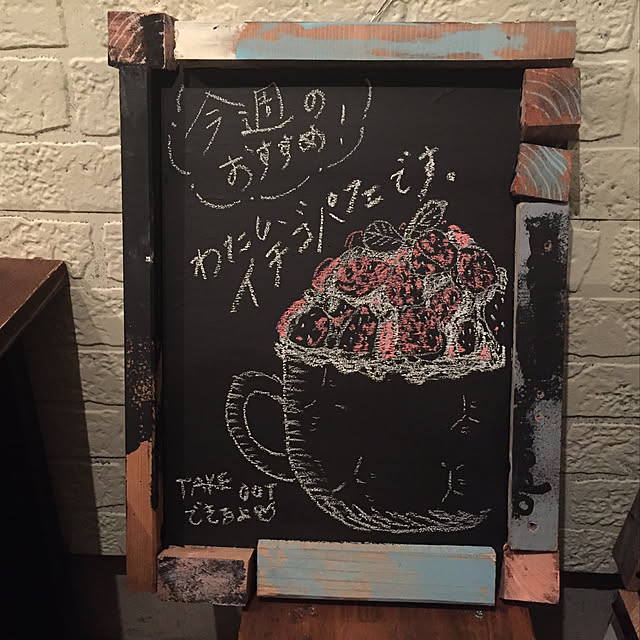 今週の
おすすめ!
わたし、
イチゴパフェです。
TAKE OUT
できるよ♡